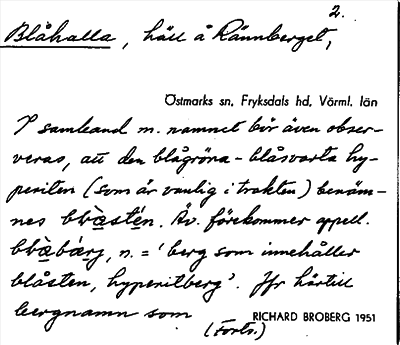 2.
Blåhalla, häll å Rännberget,
Östmarks sn, Fryksdals hd, Värml. län
I samband m. namnet bör även obser-
veras, att den blågröna - blåsvarta hy-
periten (som är vanlig i trakten) benäm-
nes blåstén. Äv. förekommer appell.
n. = 'berg som innehåller
blåsten, hyperitberg'. Jfr härtill
bergnamn som
(Forts.)
RICHARD BROBERG 1951